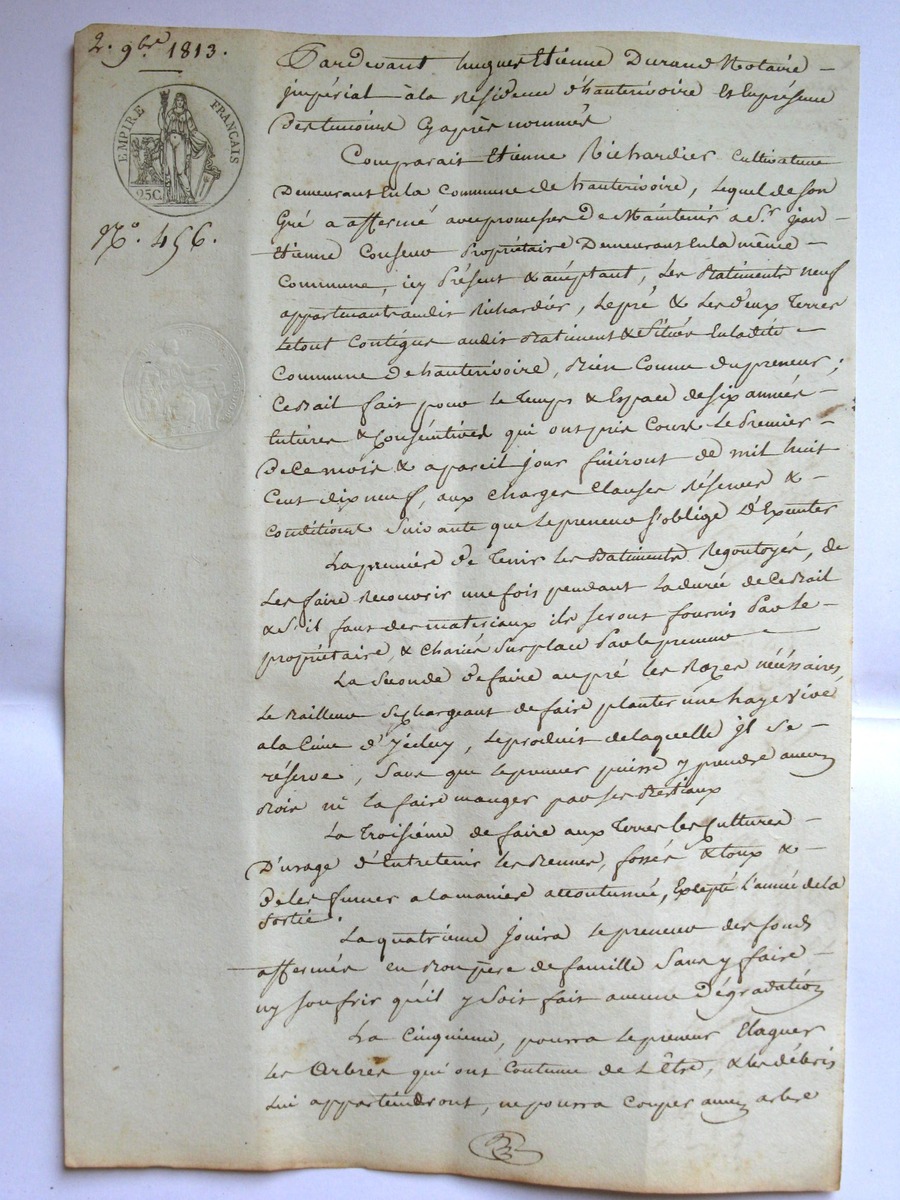 2. 9bre 1813.
EMPIRE FRANÇAIS
25C
No. 456.
Pardevant hugues Etienne Durand Notaire
jmpérial à la Résidence d'hauterivoire Et En présence
Des temoins Cy après nommés
Comparait Etienne Richardier Cultivateur
Demeurant En la Commune de hauterivoire, lequel de son
Gré a affermé avec promesse De Maintenir a Sr. jean
Etienne Propriétaire Demeurant En la même
Commune, icy Présent & acceptant, Les Batiments neuf
appartenant audit Richardier, Le pré & Les deux Terres
Le tout Contigus audit Batiment & Situés En ladite
Commune De hauterivoire, Bien Connu du preneur;
Ce Bail fait pour le Temps & Espace de six années
Entières & Consécutives qui ont pris Cours Le Premier
De Ce mois & a pareil jour finiront de mil huit
Cent dix neuf, aux Charges Clauses Réserves &
Conditions Suivante que Le preneur s'oblige D'Exécuter
La première De Tenir les Batiments Regoutoyés, de
Les faire Recouvrir une fois pendant La durée de Ce Bail
& S'il faut des materiaux ils seront fournis Par Le
propriétaire, & Chariés Sur place Par le preneur
La Seconde De faire au pré les Razes nécéssaires,
Le Bailleur Se Chargeant de faire planter une haye vive
a la Cime D'jcéluy, Le produit de laquelle jl Se
réserve, Sans que Le preneur puisse y prendre aucun
Bois ni la faire manger par Ses Bestiaux
La Troisiéme de faire aux Terres les Cultures
D'usage D'Entretenir les fossés &
De les fumer a la maniere accoutumée, Excepté L'année de la
Sortie.
La quatrieme jouira Le preneur des fonds
affermés en Bon père de famille Sans y faire
ny soufrir qu'il y Soit fait aucune Dégradation
La Cinquieme, pourra Le preneur Elaguer
Les Arbres qui ont Coutume de L'être, & les débris
Lui appartiendront, ne pourra Couper aucun arbre